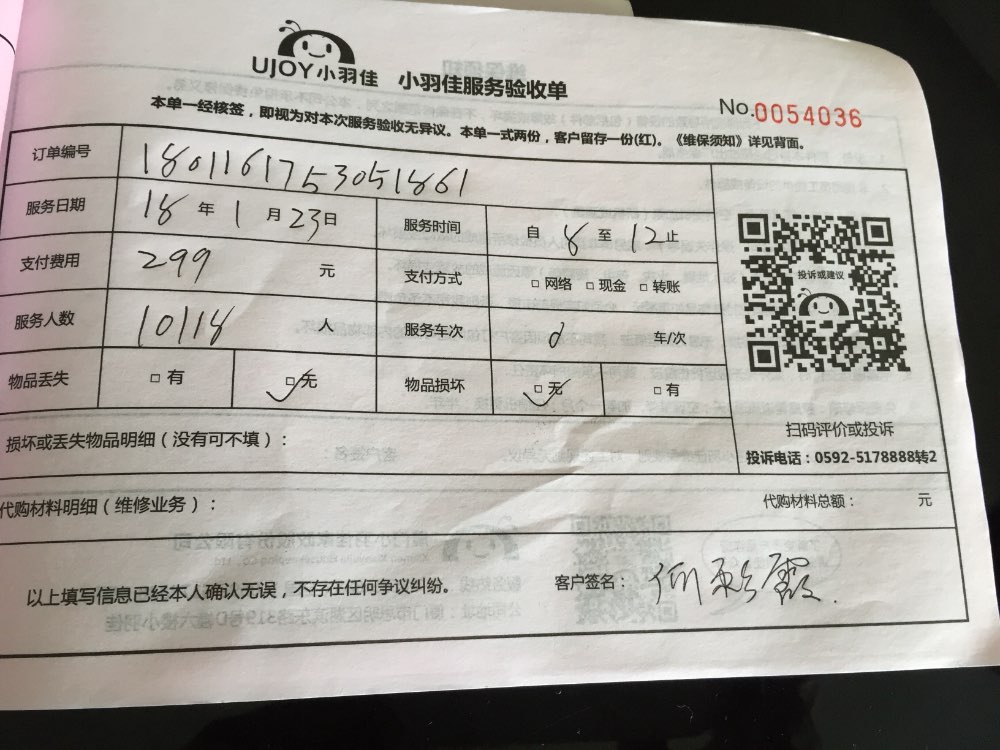 UJOY小羽佳 小羽佳服务验收单
No.0054036
本单一经核签，即视为对本次服务验收无异议。本单一式两份，客户留存一份(红)。《维保须知》详见背面。
订单编号 1801161753051861
服务日期 18 年 1 月 23 日 服务时间 自 8 至 12 止
支付费用 299 元 支付方式 □ 网络 □ 现金 □ 转账
投诉或建议
服务人数 10118 人 服务车次 车/次
物品丢失 □ 有 □ 无 物品损坏 □ 无 □ 有
扫码评价或投诉
投诉电话：0592-5178888转2
损坏或丢失物品明细（没有可不填）：
代购材料明细（维修业务）： 代购材料总额： 元
以上填写信息已经本人确认无误，不存在任何争议纠纷。 客户签名：